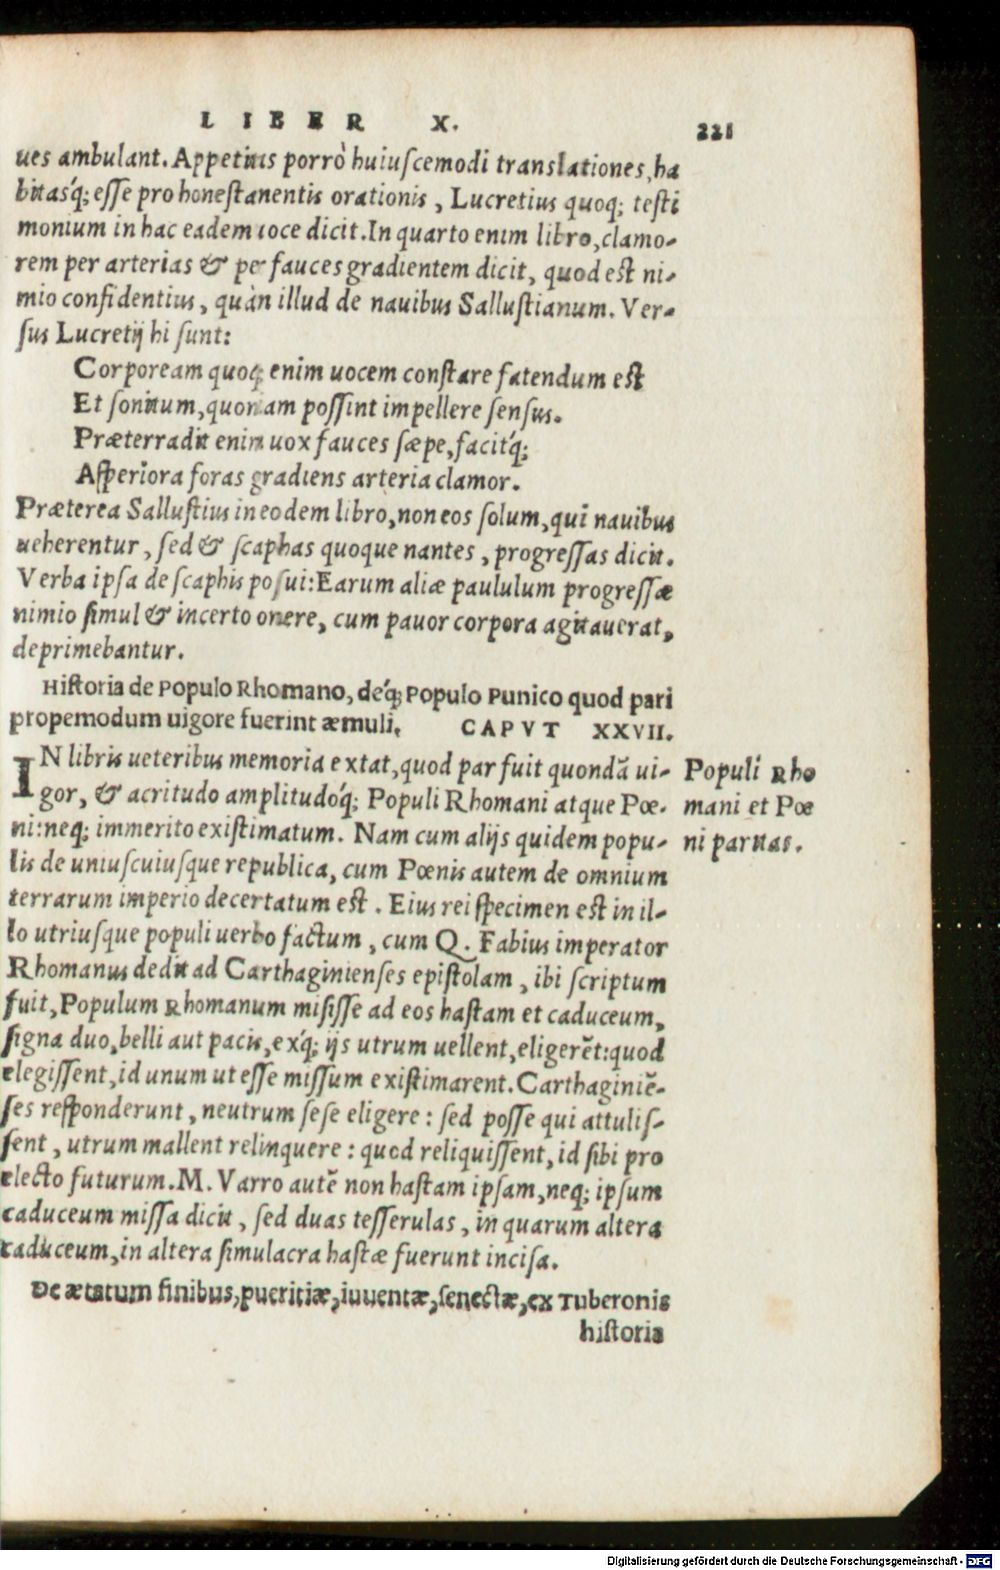 LIBER X. 221
ues ambulant. Appetitus porrò huiuscemodi translationes, ha
bitasq́; esse pro honestamentis orationis, Lucretius quoq; testi
monium in hac eadem uoce dicit. In quarto enim libro, clamo-
rem per arterias & per fauces gradientem dicit, quod est ni-
mio confidentius, quàm illud de nauibus Sallustianum. Ver-
sus Lucretij hi sunt:
Corpoream quoq; enim uocem constare fatendum est
Et sonitum, quoniam possint impellere sensus.
Præterradit enim uox fauces sæpe, facitq́;
Asperiora foras gradiens arteria clamor.
Præterea Sallustius in eodem libro, non eos solum, qui nauibus
ueherentur, sed & scaphas quoque nantes, progressas dicit.
Verba ipsa de scaphis posui: Earum aliæ paululum progressæ
nimio simul & incerto onere, cum pauor corpora agitauerat,
deprimebantur.
Historia de Populo Rhomano, deq́; Populo Punico quod pari
propemodum uigore fuerint æmuli. CAPVT XXVII.
IN libris ueteribus memoria extat, quod par fuit quondā ui-
gor, & acritudo amplitudoq́; Populi Rhomani atque Pœ-
ni: neq; immerito existimatum. Nam cum alijs quidem popu-
lis de uniuscuiusque republica, cum Pœnis autem de omnium
terrarum imperio decertatum est. Eius rei specimen est in il-
lo utriusque populi uerbo factum, cum Q. Fabius imperator
Rhomanus dedit ad Carthaginienses epistolam, ibi scriptum
fuit, Populum Rhomanum misisse ad eos hastam et caduceum,
signa duo, belli aut pacis, exq́; ijs utrum uellent, eligerēt: quod
elegissent, id unum ut esse missum existimarent. Carthaginiē-
ses responderunt, neutrum sese eligere: sed posse qui attulis-
sent, utrum mallent relinquere: quod reliquissent, id sibi pro
electo futurum. M. Varro autē non hastam ipsam, neq; ipsum
caduceum missa dicit, sed duas tesserulas, in quarum altera
caduceum, in altera simulacra hastæ fuerunt incisa.
De ætatum finibus, pueritiæ, iuuentæ, senectæ, ex Tuberonis
historia
Populi Rho
mani et Pœ
ni paritas.
Digitalisierung gefördert durch die Deutsche Forschungsgemeinschaft - DFG